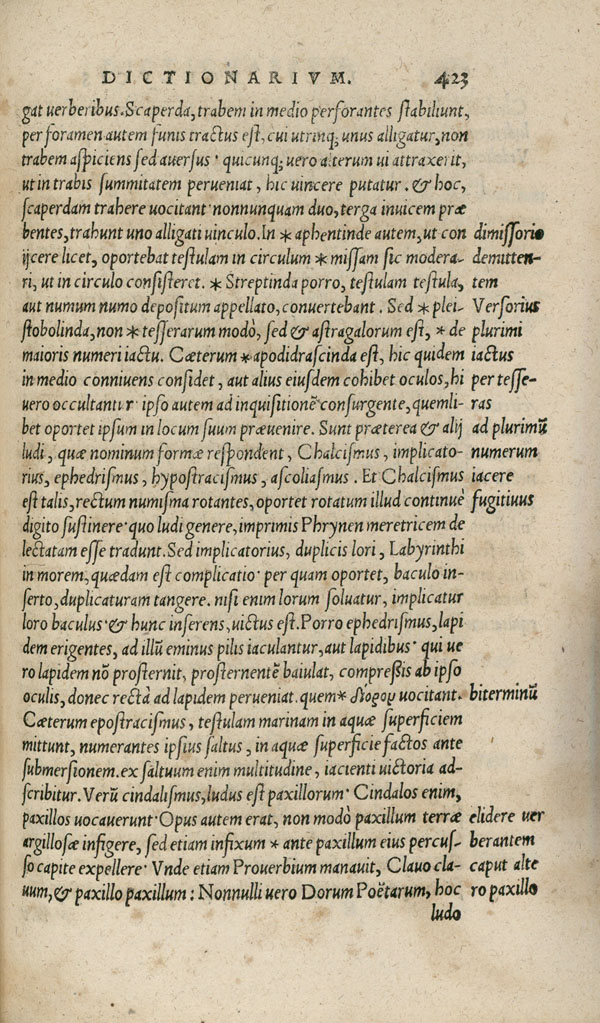 DICTIONARIVM. 423
gat uerberibus. Scaperda, trabem in medio perforantes stabiliunt,
per foramen autem funis tractus est, cui utrinq; unus alligatur, non
trabem aspiciens sed auersus· quicunq; uero alterum ui attraxerit,
ut in trabis summitatem perueniat, hic uincere putatur. & hoc,
scaperdam trahere uocitant· nonnunquam duo, terga inuicem præ
bentes, trahunt uno alligati uinculo. In * aphentinde autem, ut con dimissorio
ijcere licet, oportebat testulam in circulum * missam sic modera- demitten-
ri, ut in circulo consisteret. * Streptinda porro, testulam testula, tem
aut numum numo depositum appellato, conuertebant. Sed * plei- Versorius
stobolinda, non * tesserarum modò, sed & astragalorum est, * de plurimi
maioris numeri iactu. Cæterum * apodidrascinda est, hic quidem iactus
in medio conniuens considet, aut alius eiusdem cohibet oculos, hi per tesse-
uero occultantur· ipso autem ad inquisitionē consurgente, quemli- ras
bet oportet ipsum in locum suum præuenire. Sunt præterea & alij ad plurimū
ludi, quæ nominum formæ respondent, Chalcismus, implicato- numerum
rius, ephedrismus, hypostracismus, ascoliasmus. Et Chalcismus iacere
est talis, rectum numisma rotantes, oportet rotatum illud continuè fugitiuus
digito sustinere· quo ludi genere, imprimis Phrynen meretricem de
lectatam esse tradunt. Sed implicatorius, duplicis lori, Labyrinthi
in morem, quædam est complicatio· per quam oportet, baculo in-
serto, duplicaturam tangere. nisi enim lorum soluatur, implicatur
loro baculus· & hunc inserens, uictus est. Porro ephedrismus, lapi
dem erigentes, ad illū eminus pilis iaculantur, aut lapidibus· qui ue
ro lapidem nō prosternit, prosternentē baiulat, compreßis ab ipso
oculis, donec rectà ad lapidem perueniat. quem * δίορον uocitant. biterminū
Cæterum epostracismus, testulam marinam in aquæ superficiem
mittunt, numerantes ipsius saltus, in aquæ superficie factos ante
submersionem. ex saltuum enim multitudine, iacienti uictoria ad-
scribitur. Verū cindalismus, ludus est paxillorum· Cindalos enim,
paxillos uocauerunt· Opus autem erat, non modò paxillum terræ elidere uer
argillosæ infigere, sed etiam infixum * ante paxillum eius percus- berantem
so capite expellere· Vnde etiam Prouerbium manauit, Clauo cla- caput alte
uum, & paxillo paxillum: Nonnulli uero Dorum Poëtarum, hoc ro paxillo
ludo